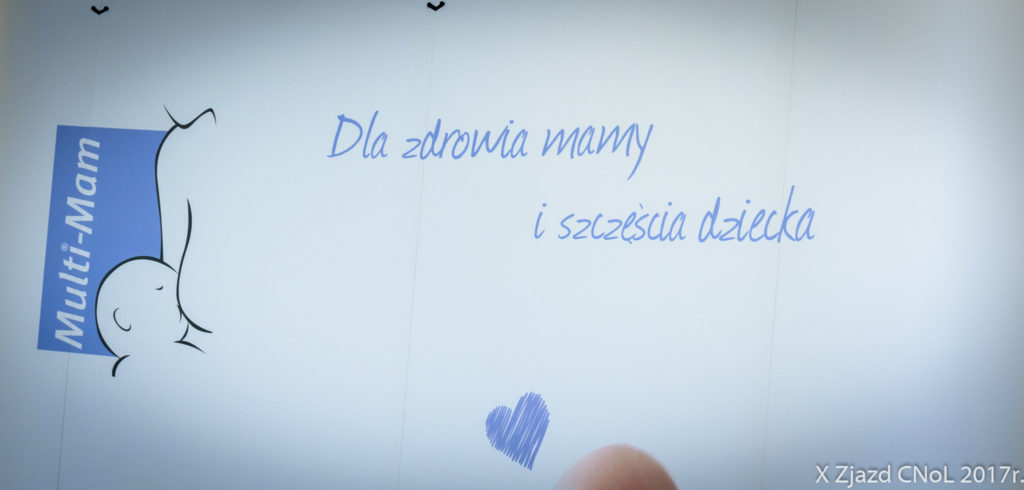 Multi-Mam®
Dla zdrowia mamy
i szczęścia dziecka
X Zjazd CNoL 2017r.